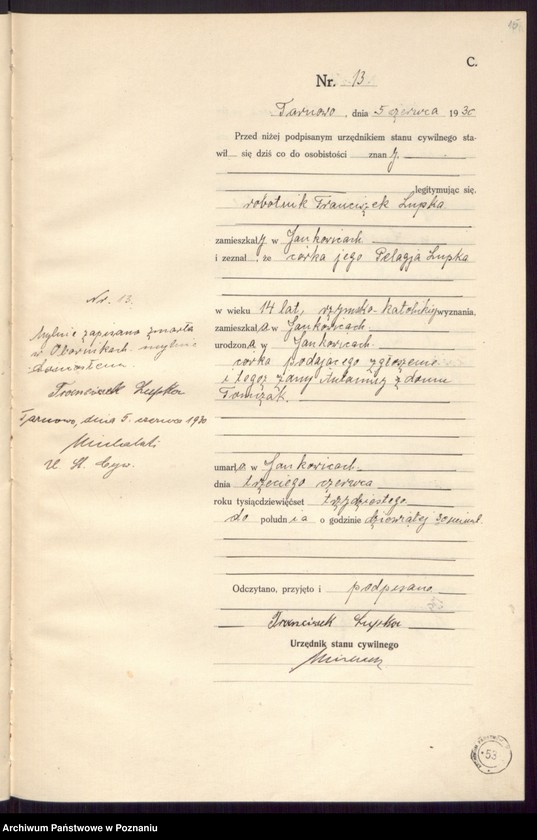 15
C.
Nr. 13.
Tarnowo, dnia 5 czerwca 1930
Przed niżej podpisanym urzędnikiem stanu cywilnego sta-
wił się dziś co do osobistości, znany
legitymując się.
robotnik Franciszek Łupka
zamieszkały w Jankowicach
i zeznał, że córka jego Pelagja Łupka
w wieku 14 lat, rzymsko-katolickiej wyznania.
zamieszkała w Jankowicach
urodzona w Jankowicach
córka podającego zgłoszenie
i tegoż żony Antoniny z domu
umarła w Jankowicach
dnia trzeciego czerwca
roku tysiącdziewięćset trzydziestego
do południa o godzinie dziewiątej
Odczytano, przyjęto i podpisano
Franciszek Łupka
Urzędnik stanu cywilnego
Nr. 13.
Mylnie zapisano zmarła
w Obornikach mylnie
Franciszek Łupka
Tarnowo, dnia 5. czerwca 1930
Michalski
U. St. Cyw.
53
Archiwum Państwowe w Poznaniu